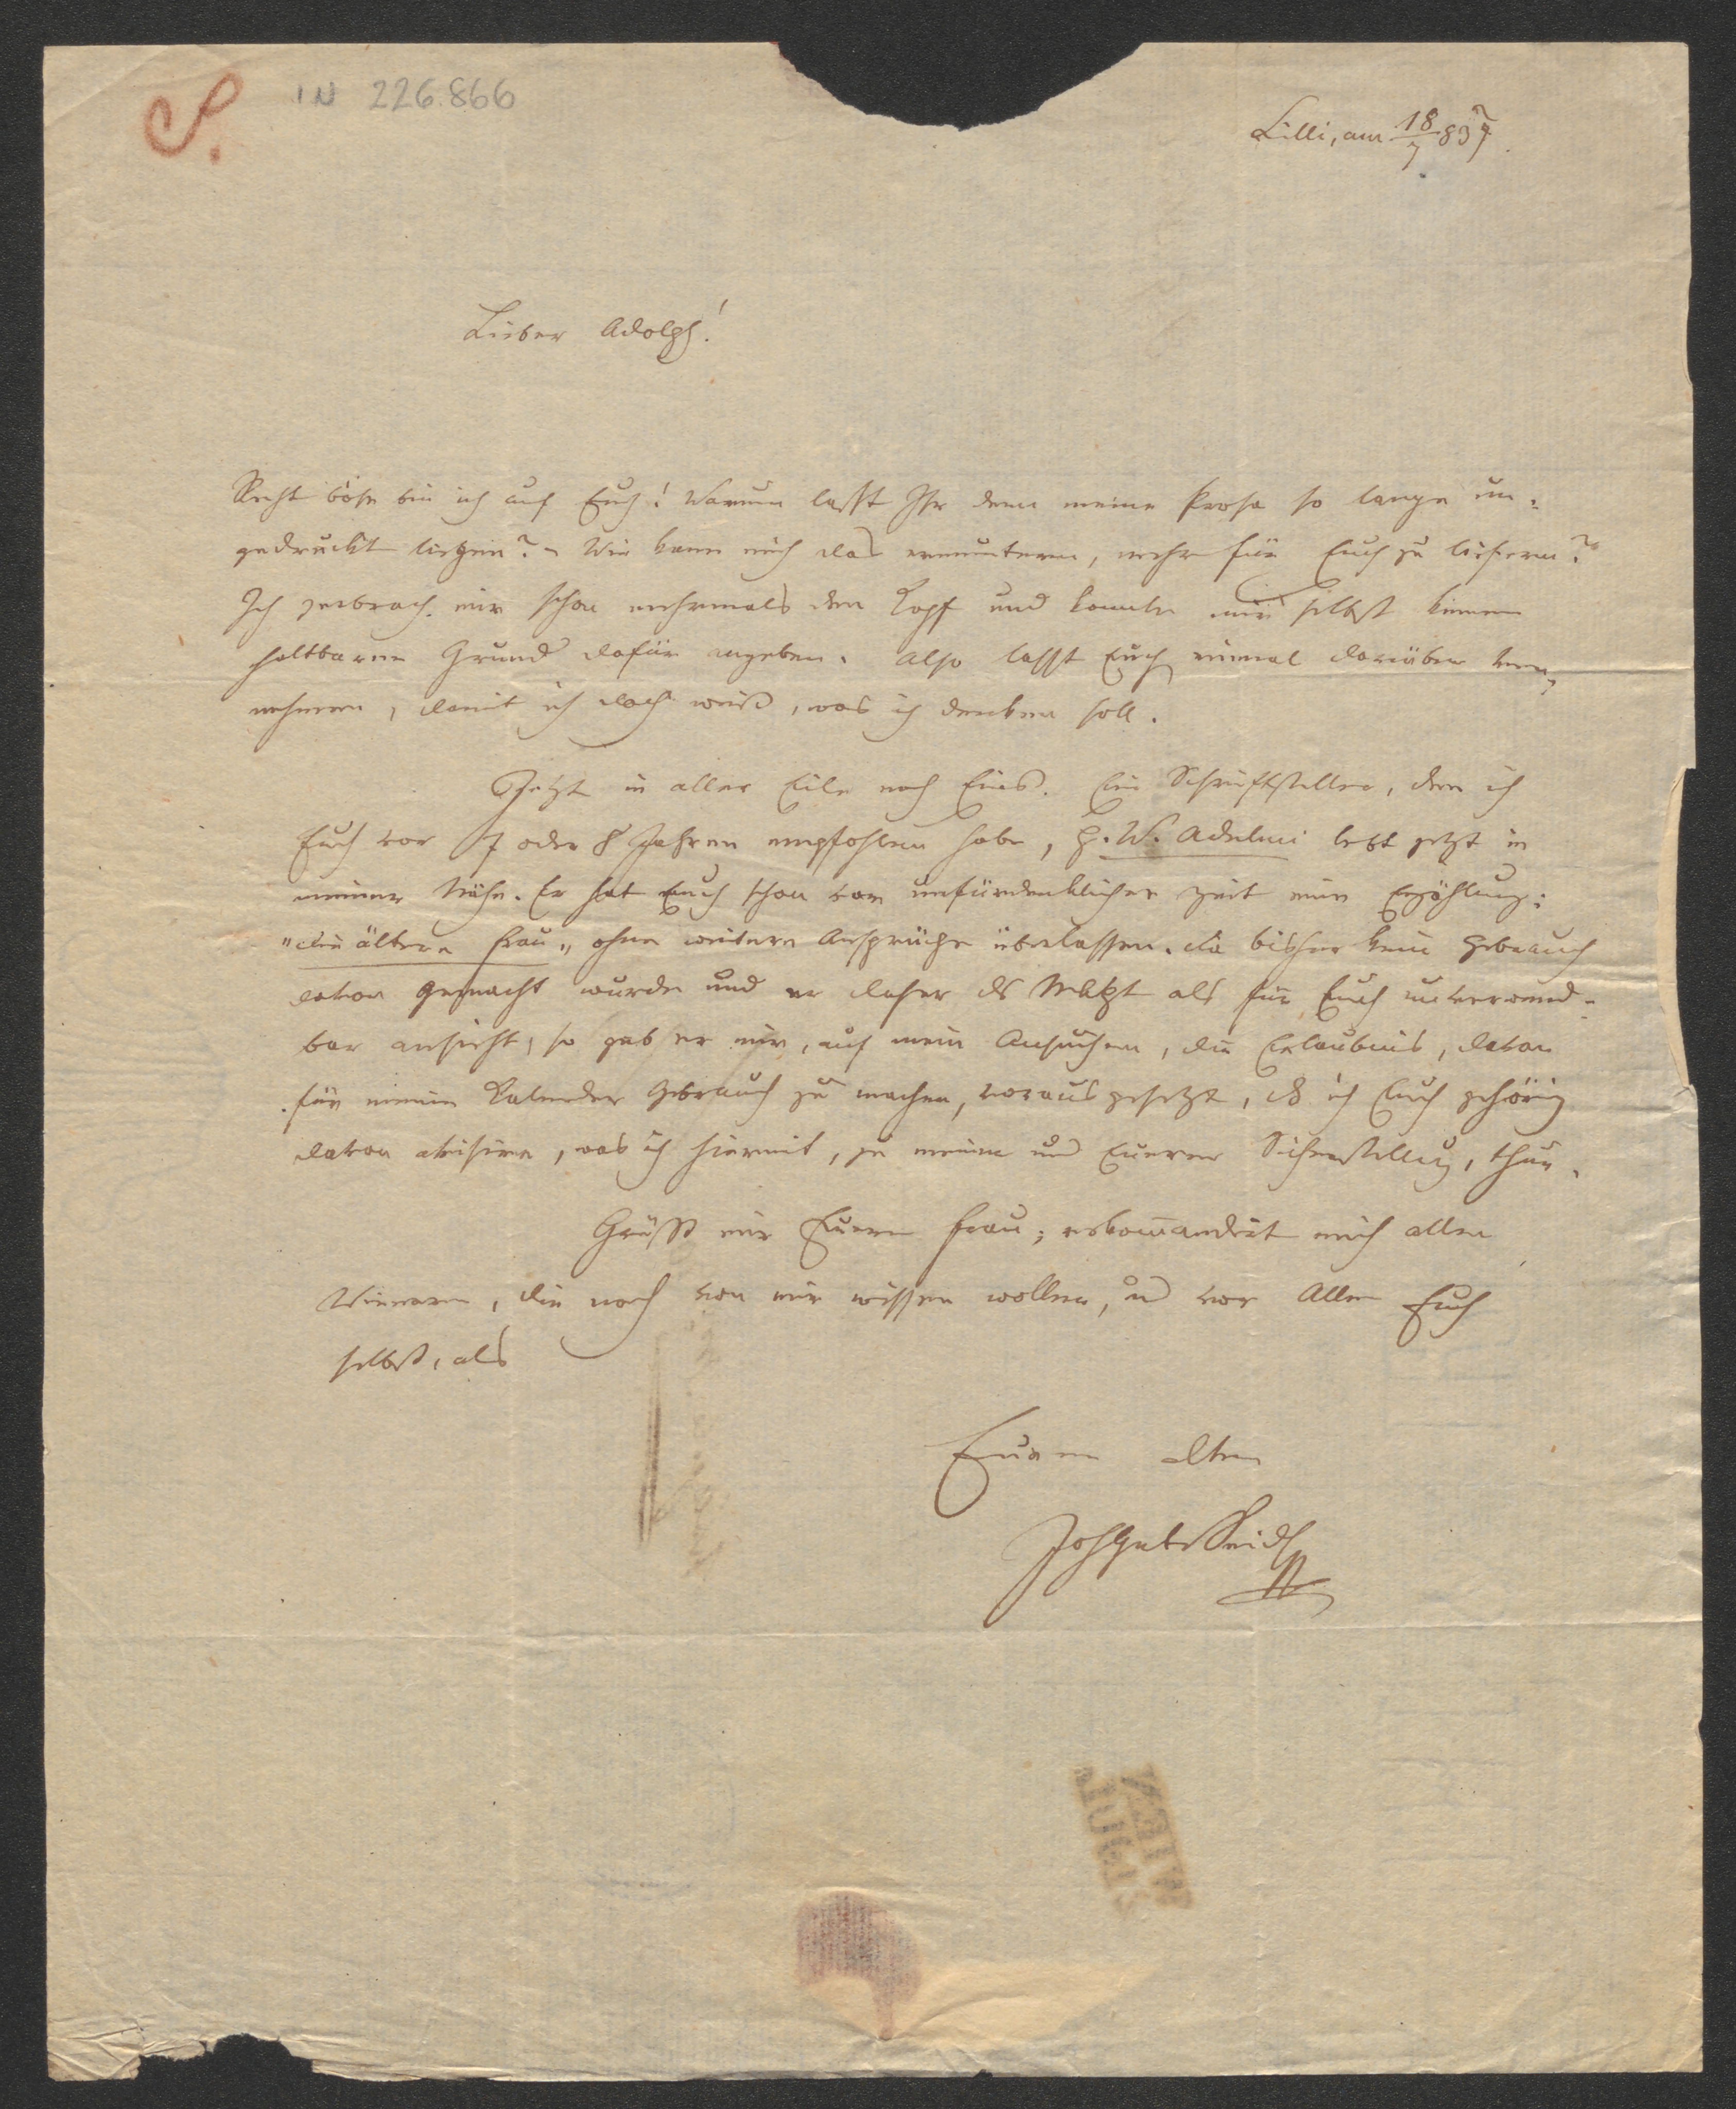 S.
IN 226.866
Cilli, am 18/7 837.
Lieber Adolph!
Recht böse bin ich auf Euch! Warum lasst Ihr denn meine Prosa so lange un-
gedruckt liegen? – Wie kann mich das ermuntern, mehr für Euch zu liefern?
Ich zerbrach mir schon mehrmals den Kopf und konnte mir selbst keinen
haltbaren Grund dafür angeben. Also lasst Euch einmal darüber ver-
nehmen, damit ich doch weiß, was ich denken soll.
Jetzt in aller Eile noch Eins. Ein Schriftsteller, den ich
Euch vor 7 oder 8 Jahren empfohlen habe, H. W. Adelmi lebt jetzt in
meiner Nähe. Er hat Euch schon vor unfürdenklicher Zeit eine Erzählung:
"die ältere Frau" ohne weitere Ansprüche überlassen. Da bisher kein Gebrauch
davon gemacht wurde und er daher das Mskpt als für Euch unverwend-
bar ansieht, so gab er mir, auf mein Ansuchen, die Erlaubnis, davon
für meinen Kalender Gebrauch zu machen, vorausgesetzt, dß ich Euch gehörig
davon avisire, was ich hiermit, zu meiner und Euerer Sicherstellung, thue.
Grüßt mir Euere Frau; rekom̅andirt mich allen
Wienern, die noch von mir wissen wollen, u vor Allen Euch
selbst, als
Euren alten
Joh Gab Seidl
WIEN